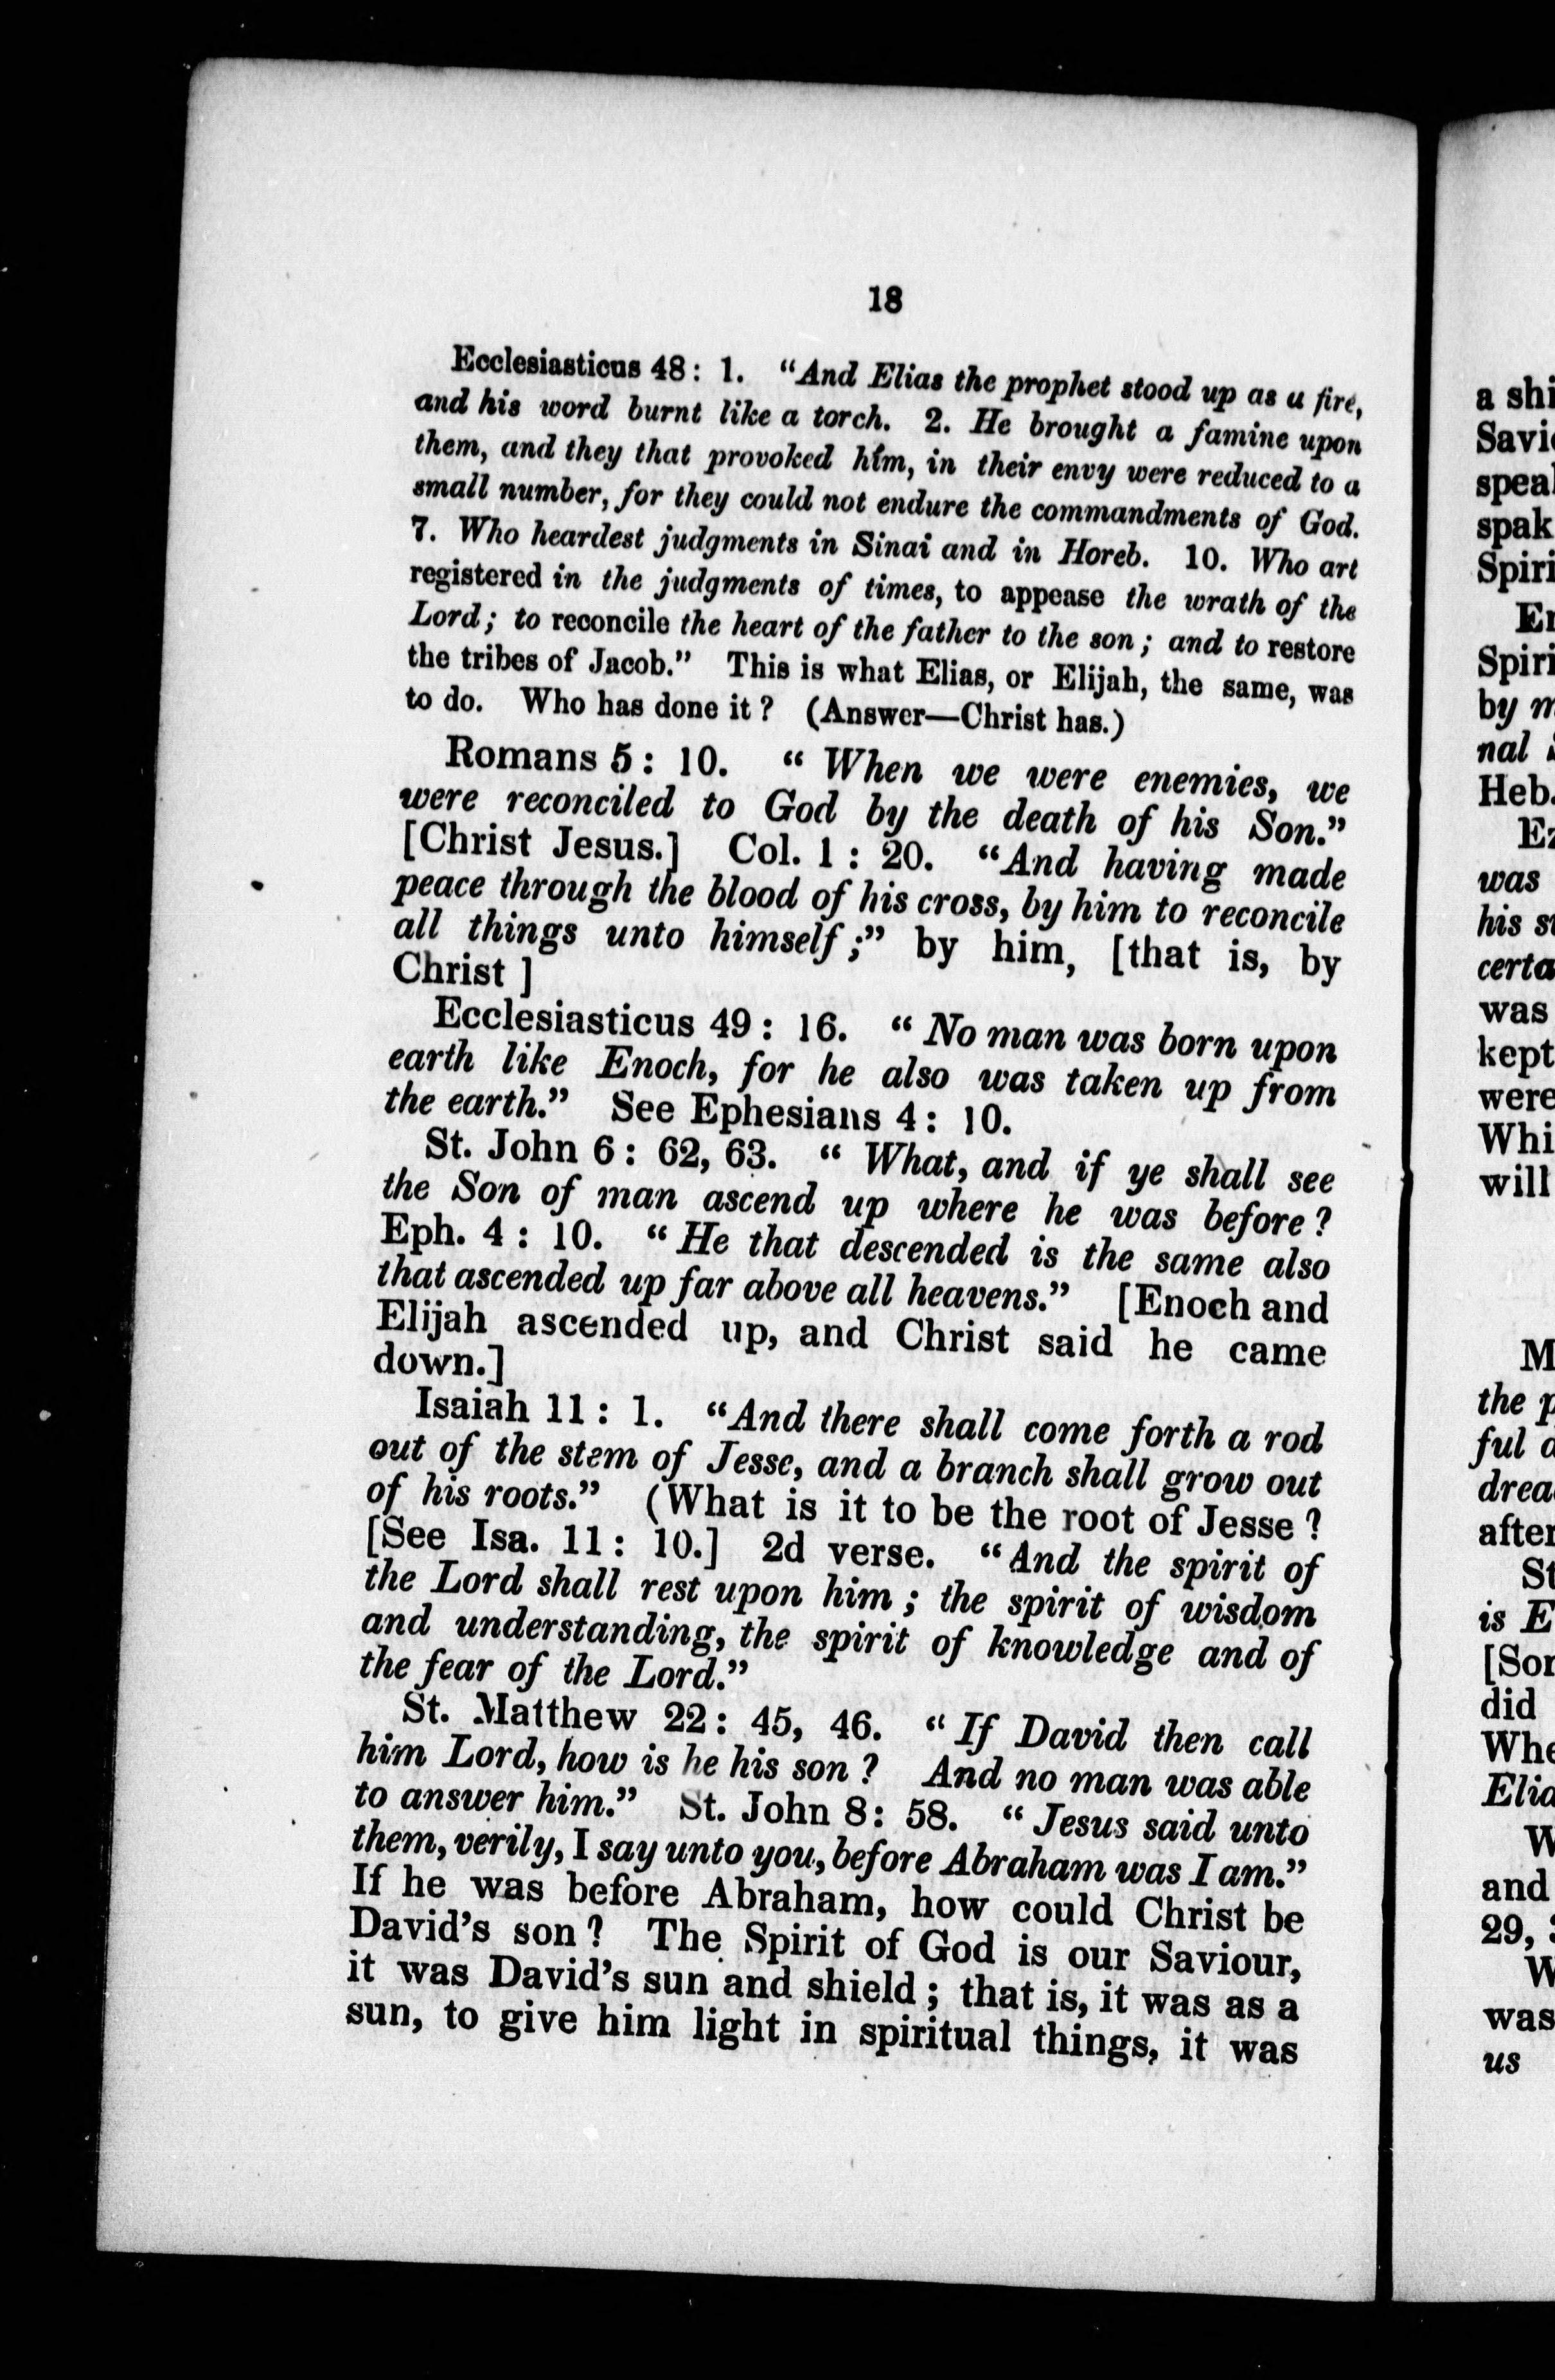 18
Ecclesiasticus 48: 1. "And Elias the prophet stood up as a fire,
and his word burnt like a torch. 2. He brought a famine upon
them, and they that provoked him, in their envy were reduced to a
small number, for they could not endure the commandments of God.
7. Who heardest judgments in Sinai and in Horeb. 10. Who art
registered in the judgments of times, to appease the wrath of the
Lord; to reconcile the heart of the father to the son; and to restore
the tribes of Jacob." This is what Elias, or Elijah, the same, was
to do. Who has done it? (Answer—Christ has.)
Romans 5: 10. "When we were enemies, we
were reconciled to God by the death of his Son."
[Christ Jesus.] Col. 1: 20. "And having made
peace through the blood of his cross, by him to reconcile
all things unto himself;" by him, [that is, by
Christ ]
Ecclesiasticus 49: 16. "No man was born upon
earth like Enoch, for he also was taken up from
the earth." See Ephesians 4: 10.
St. John 6: 62, 63. "What, and if ye shall see
the Son of man ascend up where he was before?
Eph. 4: 10. "He that descended is the same also
that ascended up far above all heavens." [Enoch and
Elijah ascended up, and Christ said he came
down.]
Isaiah 11: 1. "And there shall come forth a rod
out of the stem of Jesse, and a branch shall grow out
of his roots." (What is it to be the root of Jesse?
[See Isa. 11: 10.] 2d verse. "And the spirit of
the Lord shall rest upon him; the spirit of wisdom
and understanding, the spirit of knowledge and of
the fear of the Lord."
St. Matthew 22: 45, 46. "If David then call
him Lord, how is he his son? And no man was able
to answer him." St. John 8: 58. "Jesus said unto
them, verily, I say unto you, before Abraham was I am."
If he was before Abraham, how could Christ be
David's son? The Spirit of God is our Saviour,
it was David's sun and shield; that is, it was as a
sun, to give him light in spiritual things, it was
a shi
Savi
spea
spak
Spiri
Spiri
by
nal
Heb.
was
his
certa
was
kept
were
Whi
will
M
the
ful
drea
after
St
is E
[Sor
did
Whe
Elia
W
and
29,
W
was
us